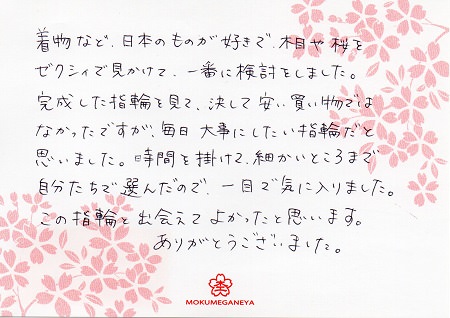 着物など、日本のものが好きで、木目や桜を
ゼクシィで見かけて、一番に検討をしました。
完成した指輪を見て、決して安い買い物では
なかったですが、毎日大事にしたい指輪だと
思いました。時間を掛けて、細かいところまで
自分たちで選んだので、一目で気に入りました。
この指輪と出会えてよかったと思います。
ありがとうございました。
MOKUMEGANEYA